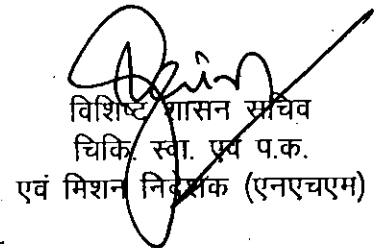 विशिष्ट शासन सचिव
चिकि. स्वा. एवं प.क.
एवं मिशन निदेशक (एनएचएम)